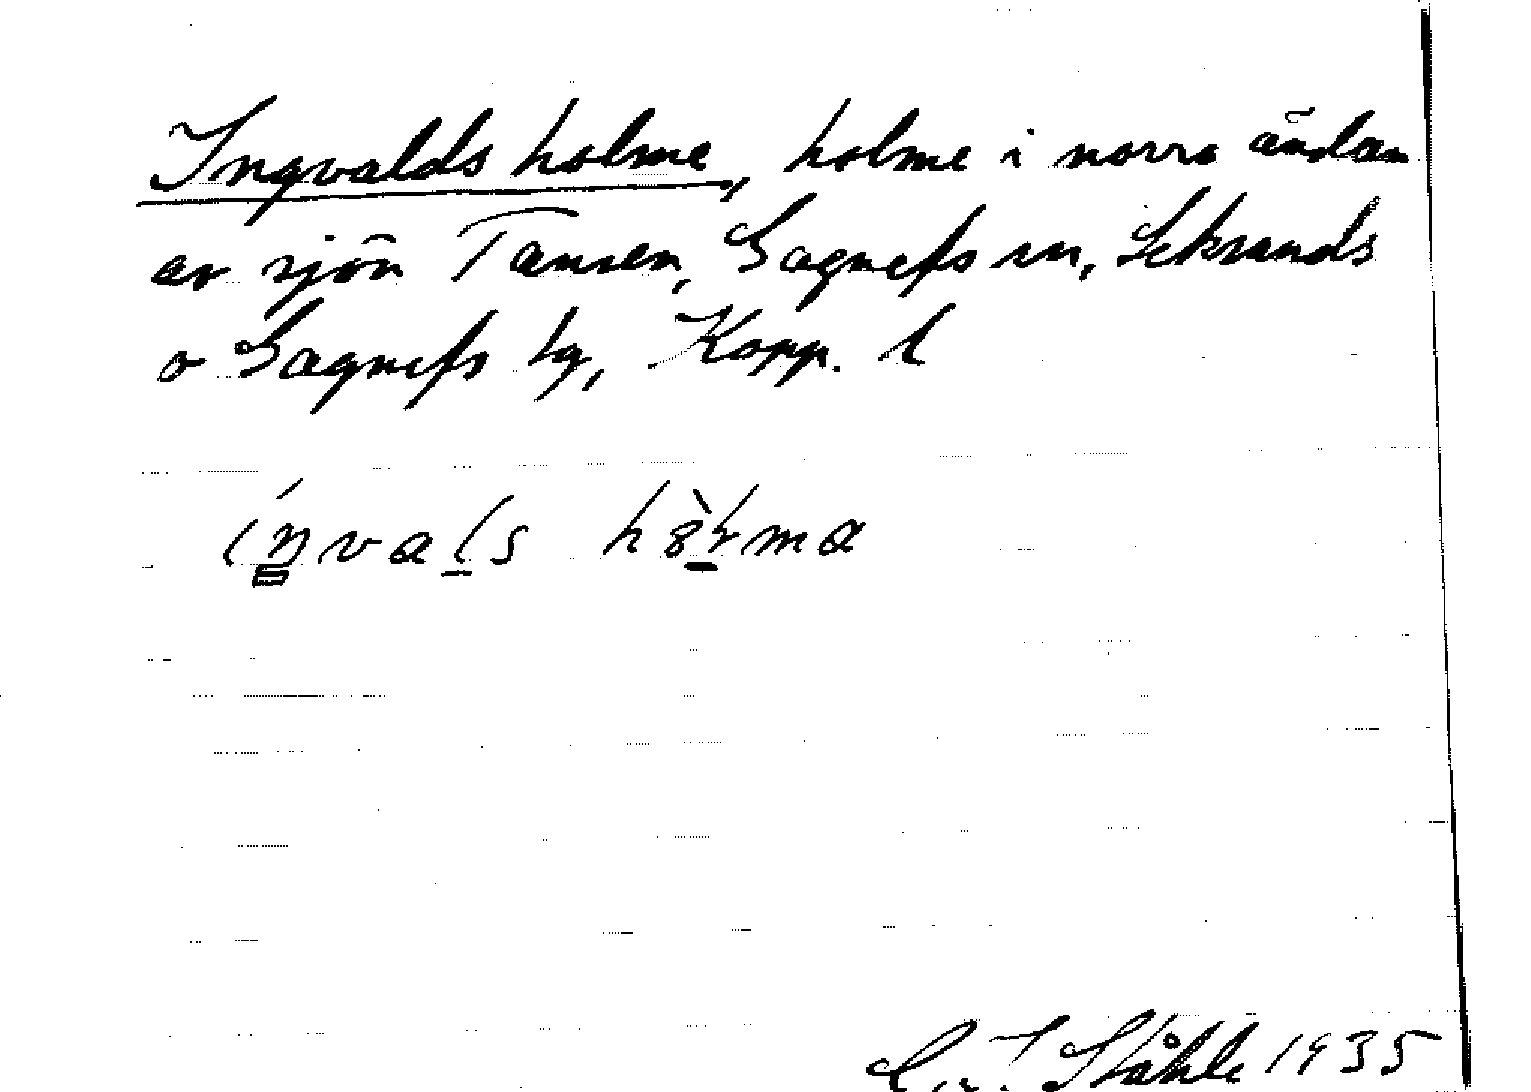 Ingvalds holme, holme i norra ändan
av sjön Tansen, Gagnefs sn, Leksands
o Gagnefs tg, Kopp. l
C. I. Ståhle 1935